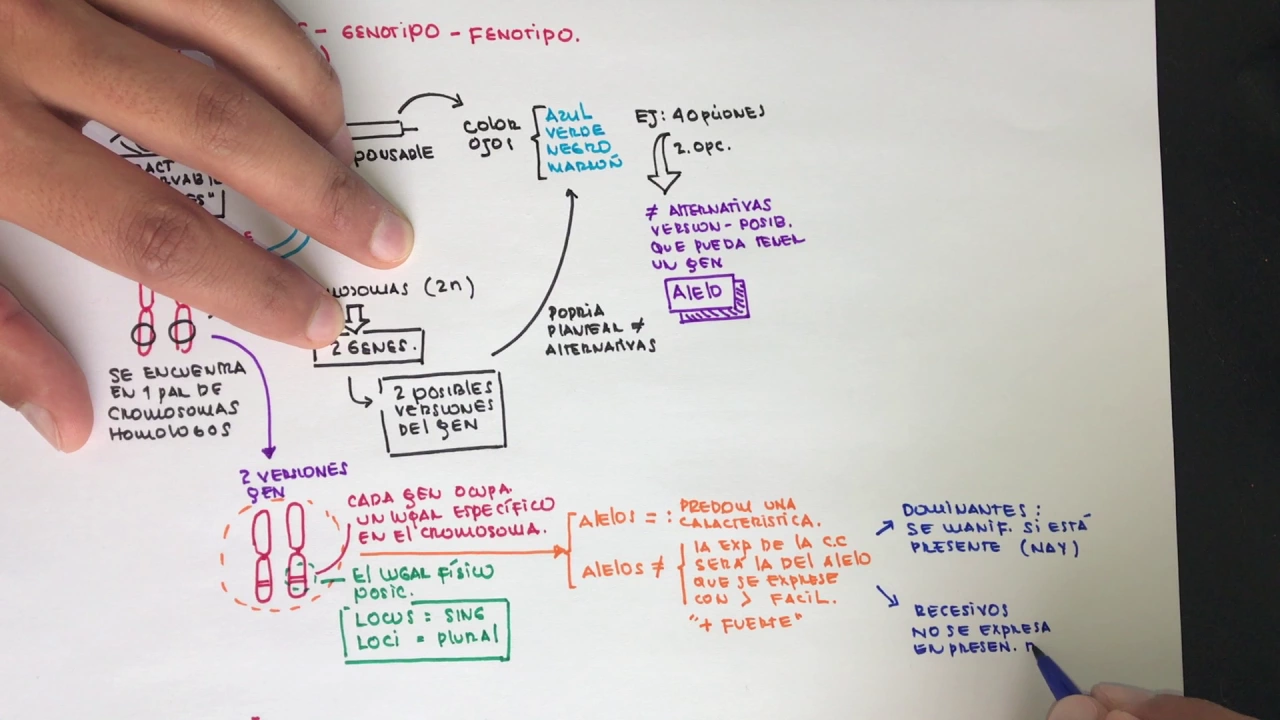 - GENOTIPO - FENOTIPO.
PONSABLE
COLOR
OJOS
AZUL
VERDE
NEGRO
MARRON
EJ: 4 OPCIONES
2. OPC.
≠ ALTERNATIVAS
VERSION - POSIB.
QUE PUEDA TENER
UN GEN
AlElO
ACT
RVABl
ES"
MOSOMAS (2n)
2 GENES.
2 POSIBLES
VERSIONES
DEL GEN
PODRIA
PLANTEAR ≠
ALTERNATIVAS
SE ENCUENTRA
EN 1 PAR DE
CROMOSOMAS
HOMOLOGOS
2 VERSIONES
GEN
CADA GEN OCUPA
UN LUGAR ESPECÍFICO
EN El CROMOSOMA.
El LUGAR FÍSICO
POSIC.
LOCUS = SING
LOCI = PLURAL
AlElOS = : PREDOM UNA
CARACTERISTICA.
AlElOS ≠
LA EXP DE LA C.C
SERÁ LA DEL AlElO
QUE SE EXPRESE
CON > FACIL.
"+ FUERTE"
DOMINANTES :
SE MANIF. SI ESTÁ
PRESENTE (NAY)
RECESIVOS
NO SE EXPRESA
EN PRESEN.